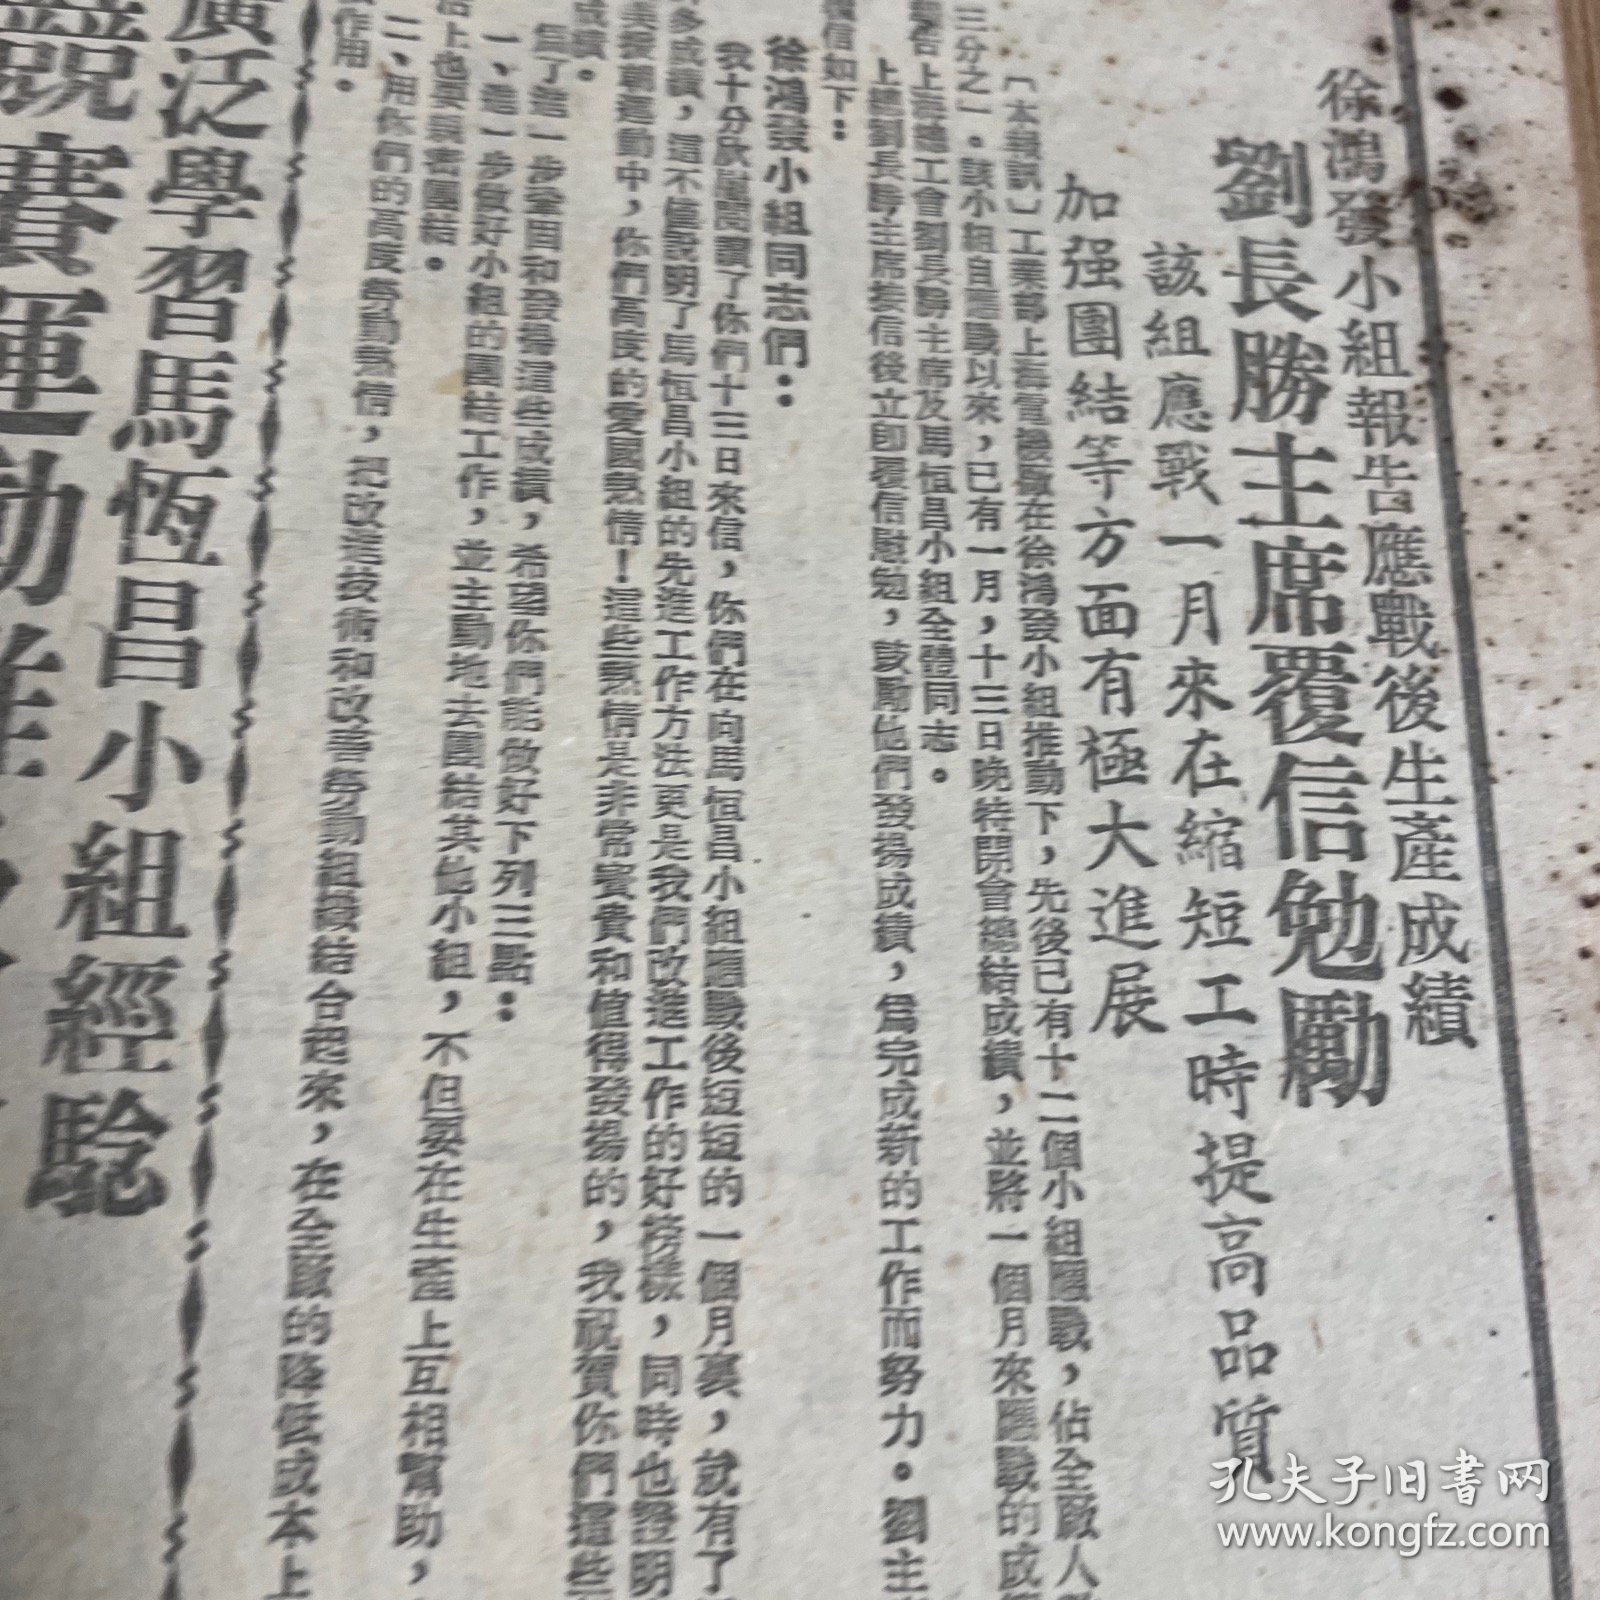 徐鴻發小組報告應戰後生產成績
劉長勝主席覆信勉勵
該組應戰一月來在縮短工時提高品質
加强團結等方面有極大進展
〔本報訊〕工業部上海電機廠在徐鴻發小組推動下，先後已有十二個小組應戰，佔全廠人
三分之一。該小組自應戰以來，已有一月，十三日晚特開會總結成績，並將一個月來應戰的成
報告上海總工會劉長勝主席及馬恒昌小組全體同志。
上總劉長勝主席接信後立即覆信慰勉，鼓勵他們發揚成績，爲完成新的工作而努力。劉主
覆信如下：
徐鴻發小組同志們：
我十分欣慰閱讀了你們十三日來信，你們在向馬恒昌小組應戰後短短的一個月裏，就有了
多成績，這不僅說明了馬恒昌小組的先進工作方法更是我們改進工作的好榜樣，同時也證明
美援朝運動中，你們高度的愛國熱情！這些熱情是非常寶貴和值得發揚的，我祝賀你們這些
成績。
爲了進一步鞏固和發揚這些成績，希望你們能做好下列三點：
一、進一步做好小組的團結工作，並主動地去團結其他小組，不但要在生產上互相幫助，
治上也要親密團結。
二、用你們的高度勞動熱情，把改進技術和改善勞動組織結合起來，在全廠的降低成本上
作用。
廣泛學習馬恆昌小組經驗
競賽運動
孔夫子旧書网
www.kongfz.com